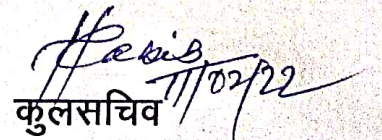 11/02/22
कुलसचिव